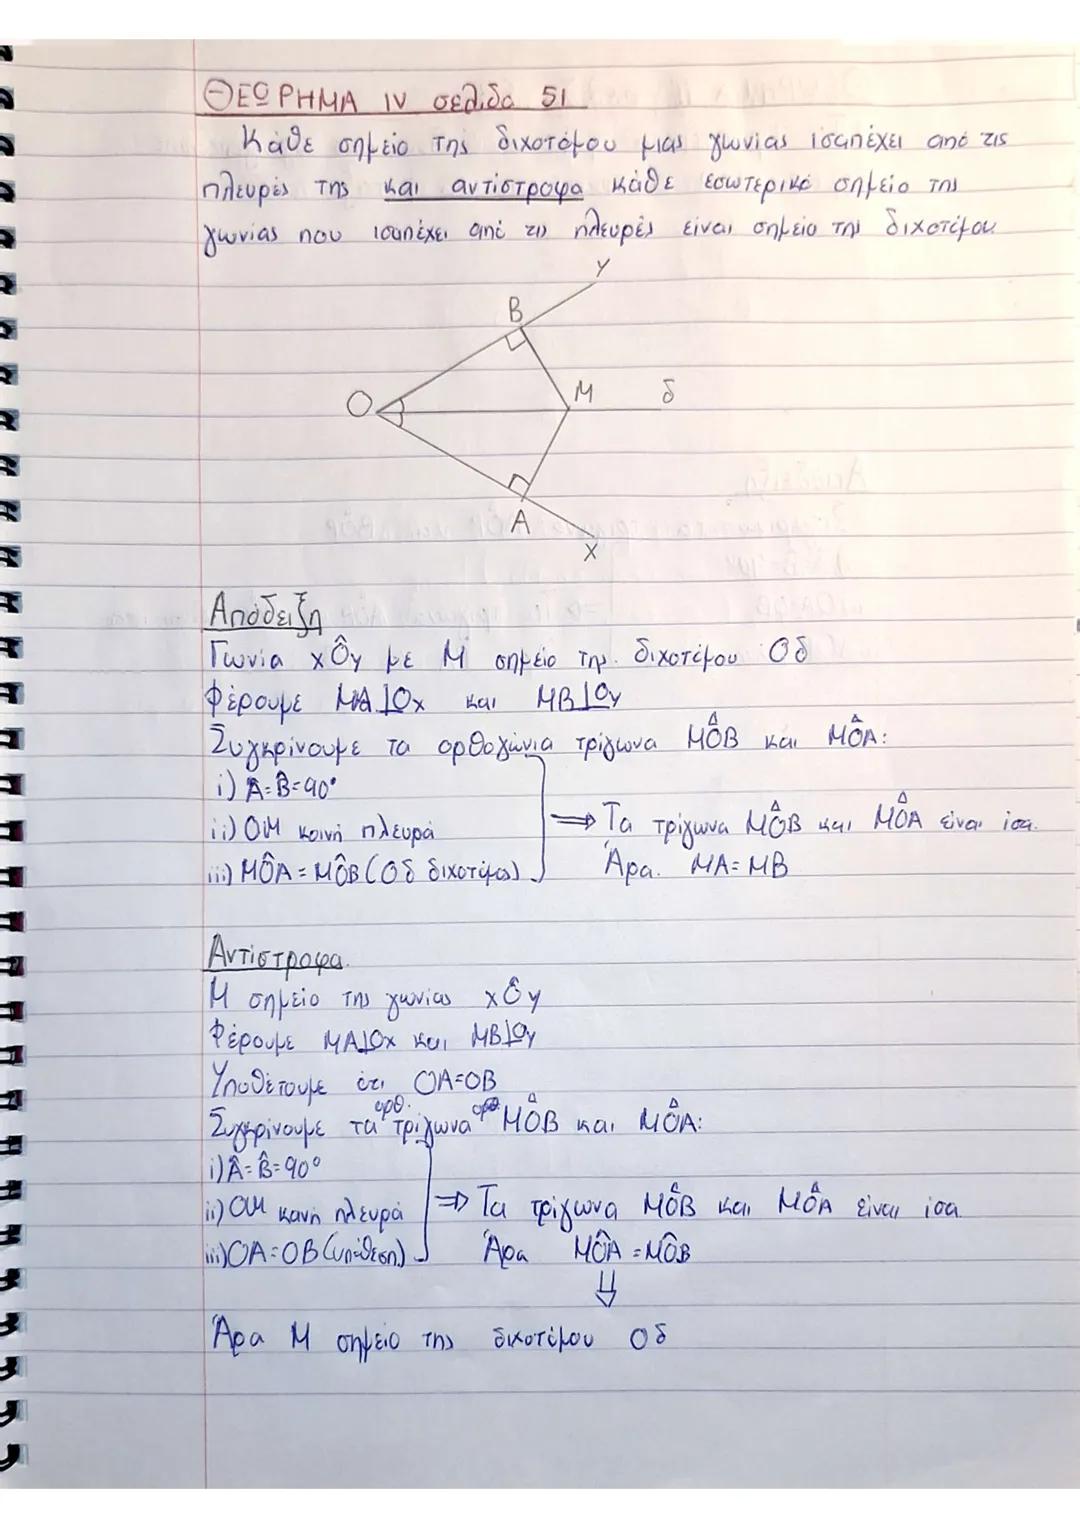 ΘΕΩΡΗΜΑ IV σελίδα 51
Κάθε σημείο της διχοτόμου μιας γωνίας ισαπέχει από τις
πλευρές της και αντίστροφα κάθε εσωτερικό σημείο της
γωνίας που ισαπέχει από τις πλευρές είναι σημείο της διχοτόμου
y
B
O
M
δ
A
x
Απόδειξη
Γωνία xÔy με M σημείο της διχοτόμου Οδ
Φέρουμε MA⊥Ox και MB⊥Oy
Συγκρίνουμε τα ορθογώνια τρίγωνα MÔB και MÔA:
i) Â=B̂=90°
ii) OM κοινή πλευρά
iii) MÔA = MÔB (Οδ διχοτόμος)
⇒ Τα τρίγωνα MÔB και MÔA είναι ίσα.
Άρα. MA=MB
Αντίστροφα.
M σημείο της γωνίας xÔy
Φέρουμε MA⊥Ox και MB⊥Oy
Υποθέτουμε ότι OA=OB
Συγκρίνουμε τα ορθ. τρίγωνα MÔB και MÔA:
i) Â=B̂=90°
ii) OM κοινή πλευρά
iii) OA=OB (υπόθεση)
⇒ Τα τρίγωνα MÔB και MÔA είναι ίσα
Άρα MÔA = MÔB
⇓
Άρα M σημείο της διχοτόμου Οδ